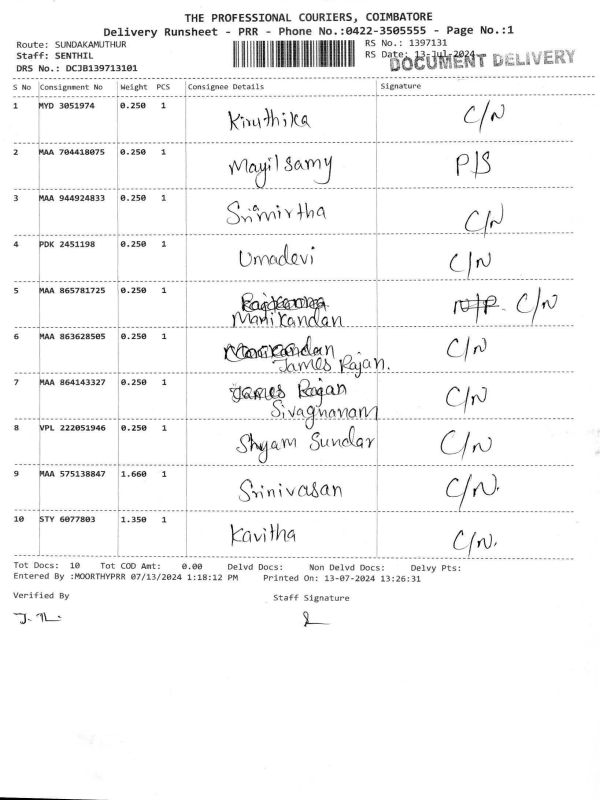 THE PROFESSIONAL COURIERS, COIMBATORE
Delivery Runsheet - PRR - Phone No.:0422-3505555 - Page No.:1
Route: SUNDAKAMUTHUR RS No.: 1397131
Staff: SENTHIL RS Date: 13-Jul-2024
DOCUMENT DELIVERY
DRS No.: DCJB139713101
S No Consignment No Weight PCS Consignee Details Signature
1 MYD 3051974 0.250 1 Kiruthika C/N
2 MAA 704418075 0.250 1 Mayilsamy P/S
3 MAA 944924833 0.250 1 Srimirtha C/N
4 PDK 2451198 0.250 1 Umadevi C/N
5 MAA 865781725 0.250 1 C/N
Manikandan
6 MAA 863628505 0.250 1 Manikandan C/N
James Rajan.
7 MAA 864143327 0.250 1 James Rajan C/N
Sivagnanam
8 VPL 222051946 0.250 1 Shyam Sundar C/N
9 MAA 575138847 1.660 1 Srinivasan C/N.
10 STY 6077803 1.350 1 Kavitha C/N.
Tot Docs: 10 Tot COD Amt: 0.00 Delvd Docs: Non Delvd Docs: Delvy Pts:
Entered By :MOORTHYPRR 07/13/2024 1:18:12 PM Printed On: 13-07-2024 13:26:31
Verified By Staff Signature